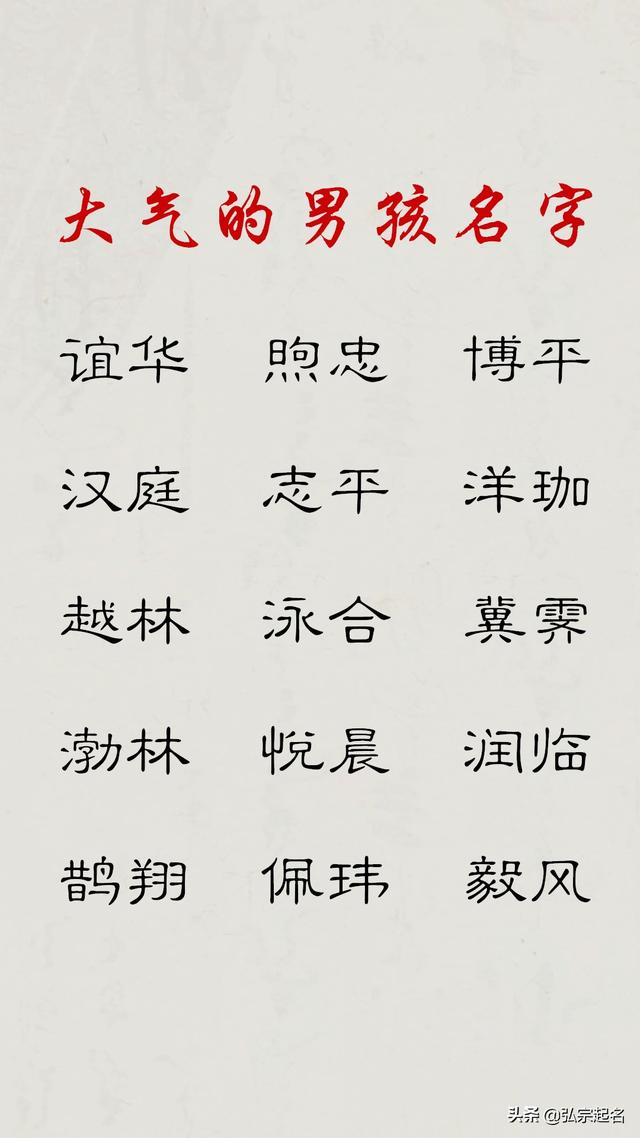 大气的男孩名字
谊华 煦忠 博平
汉庭 志平 洋珈
越林 泳合 冀霁
渤林 悦晨 润临
鹊翔 佩玮 毅风
头条 @弘宗起名